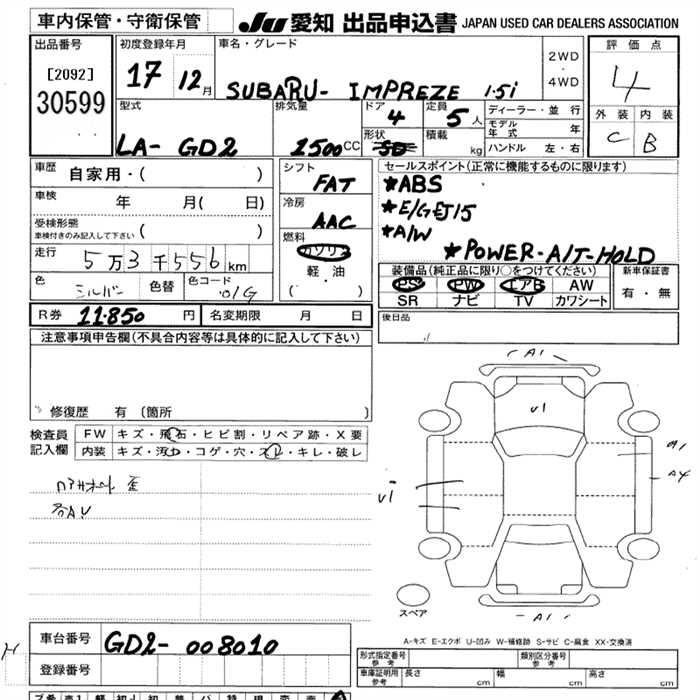 車内保管・守衛保管 JU 愛知 出品申込書 JAPAN USED CAR DEALERS ASSOCIATION
出品番号 初度登録年月 車名・グレード 評価点
[2092] 17 12月 SUBARU- IMPREZE 1.5i 2WD・4WD 4
30599
型式 排気量 ドア 4 定員 5人 ディーラー・並行 外装 内装
LA- GD2 1500CC 形状 積載 kg モデル年式 年 C B
ハンドル 左・右
車歴 自家用・( ) シフト FAT セールスポイント(正常に機能するものに限ります)
車検 年 月( 日) 冷房 AAC ★ABS
受検形態 ( ) ★E/GEJ15
車検付きのみ記入して下さい 燃料 ガソリン ★A/W
走行 5万3千556km 軽・油 ★POWER-A/T-HOLD
色 シルバー 色替 色カード 01G ・( )
装備品(純正品に限り○をつけてください) 新車保証書
PS PW エアB AW 有・無
SR ナビ TV カワシート
R券 11.850 円 名変期限 月 日 後日品
注意事項申告欄(不具合内容等は具体的に記入して下さい)
修復歴 有(箇所 )
A1
U1
A1
A4
U1
検査員記入欄 FW キズ・飛石・ヒビ割・リペア跡・X要
内装 キズ・汚れ・コゲ・穴・スレ・キレ・破レ
歪
AU
スペア
A1
A-キズ E-エクボ U-凹み W-補修跡 S-サビ C-腐食 XX-交換済
車台番号 GD2- 008010
登録番号
型式指定番号 参考 類別区分番号 参考
車庫証明用 参考 長さ cm 幅 cm 高さ cm